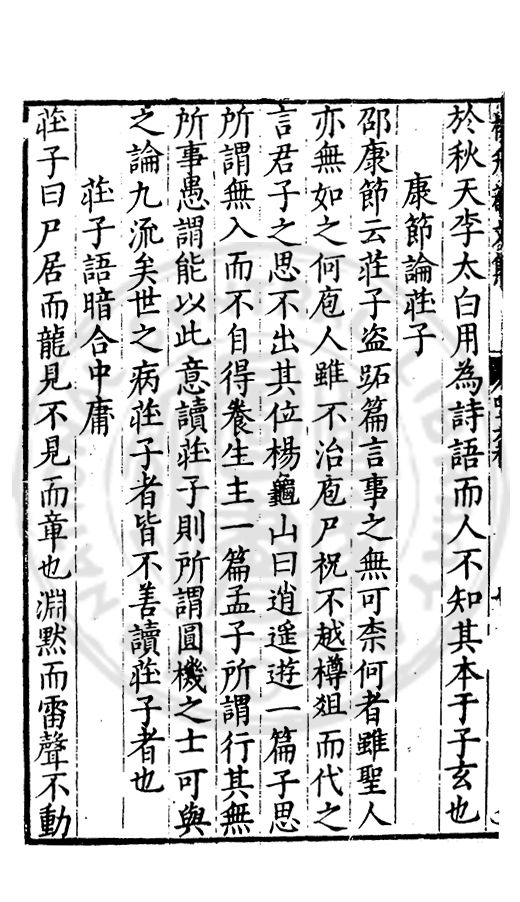 於秋天李太白用為詩語而人不知其本于子玄也
康節論莊子
邵康節云莊子盗跖篇言事之無可柰何者雖聖人
亦無如之何庖人雖不治庖尸祝不越樽俎而代之
言君子之思不出其位楊龜山曰逍遥遊一篇子思
所謂無入而不自得養生主一篇孟子所謂行其無
所事愚謂能以此意讀莊子則所謂圓機之士可與
之論九流矣世之病莊子者皆不善讀莊子者也
莊子語暗合中庸
莊子曰尸居而龍見不見而章也淵默而雷聲不動